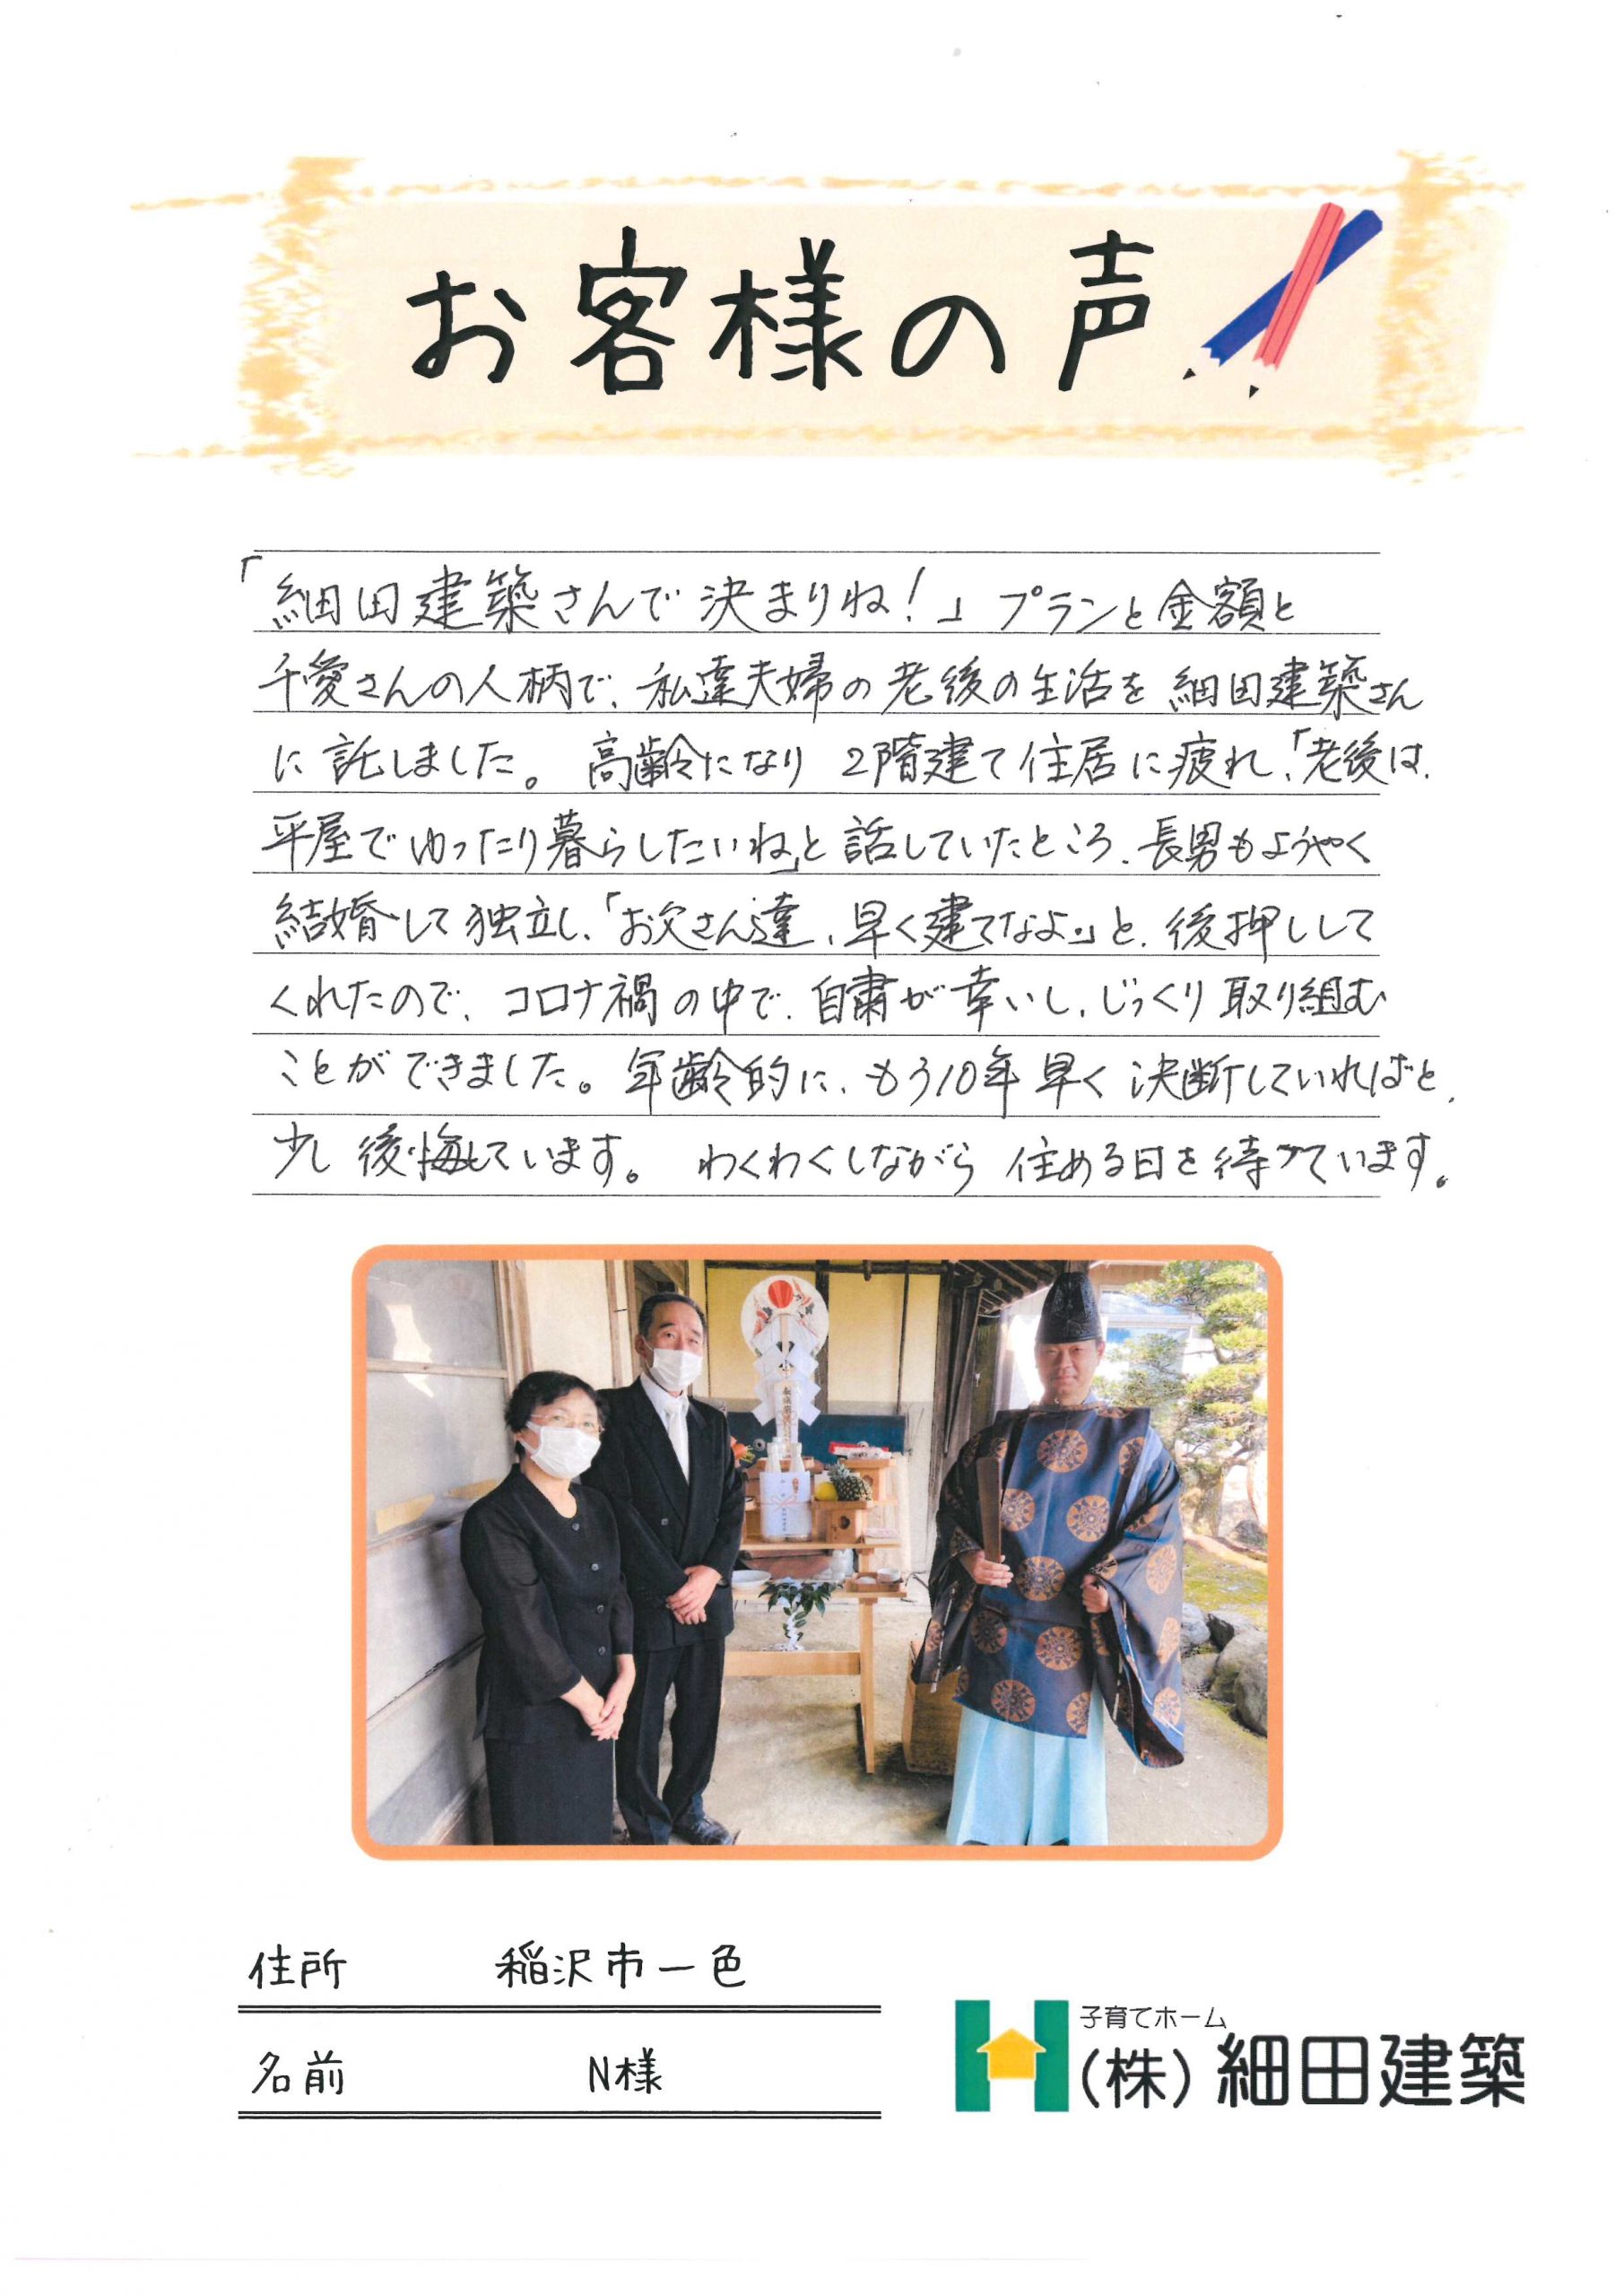 お客様の声
「細田建築さんで決まりね！」プランと金額と
千愛さんの人柄で、私達夫婦の老後の生活を細田建築さん
に託しました。高齢になり2階建て住居に疲れ、「老後は、
平屋でゆったり暮らしたいね」と話していたところ、長男もようやく
結婚して独立し、「お父さん達、早く建てなよ。」と、後押しして
くれたので、コロナ禍の中で、自粛が幸いし、じっくり取り組む
ことができました。年齢的に、もう10年早く決断していればと、
少し後悔しています。わくわくしながら住める日を待っています。
住所 稲沢市一色
名前 N様
子育てホーム
(株)細田建築